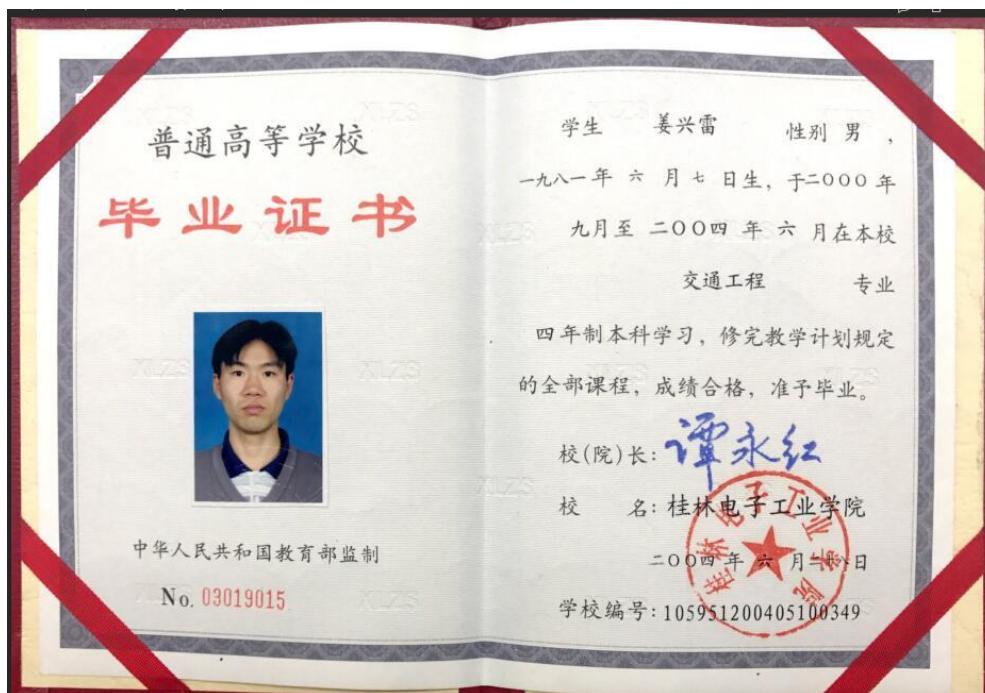 普通高等学校
毕业证书
中华人民共和国教育部监制
No. 03019015
学生 姜兴雷 性别 男，
一九八一年 六 月 七 日生，于二〇〇〇年
九月至 二〇〇四 年 六 月在本校
交通工程 专业
四年制本科学习，修完教学计划规定
的全部课程，成绩合格，准予毕业。
校(院)长：谭永红
校 名：桂林电子工业学院
二〇〇四年 六 月二十八日
学校编号：105951200405100349
桂林电子工业学院
XLZS